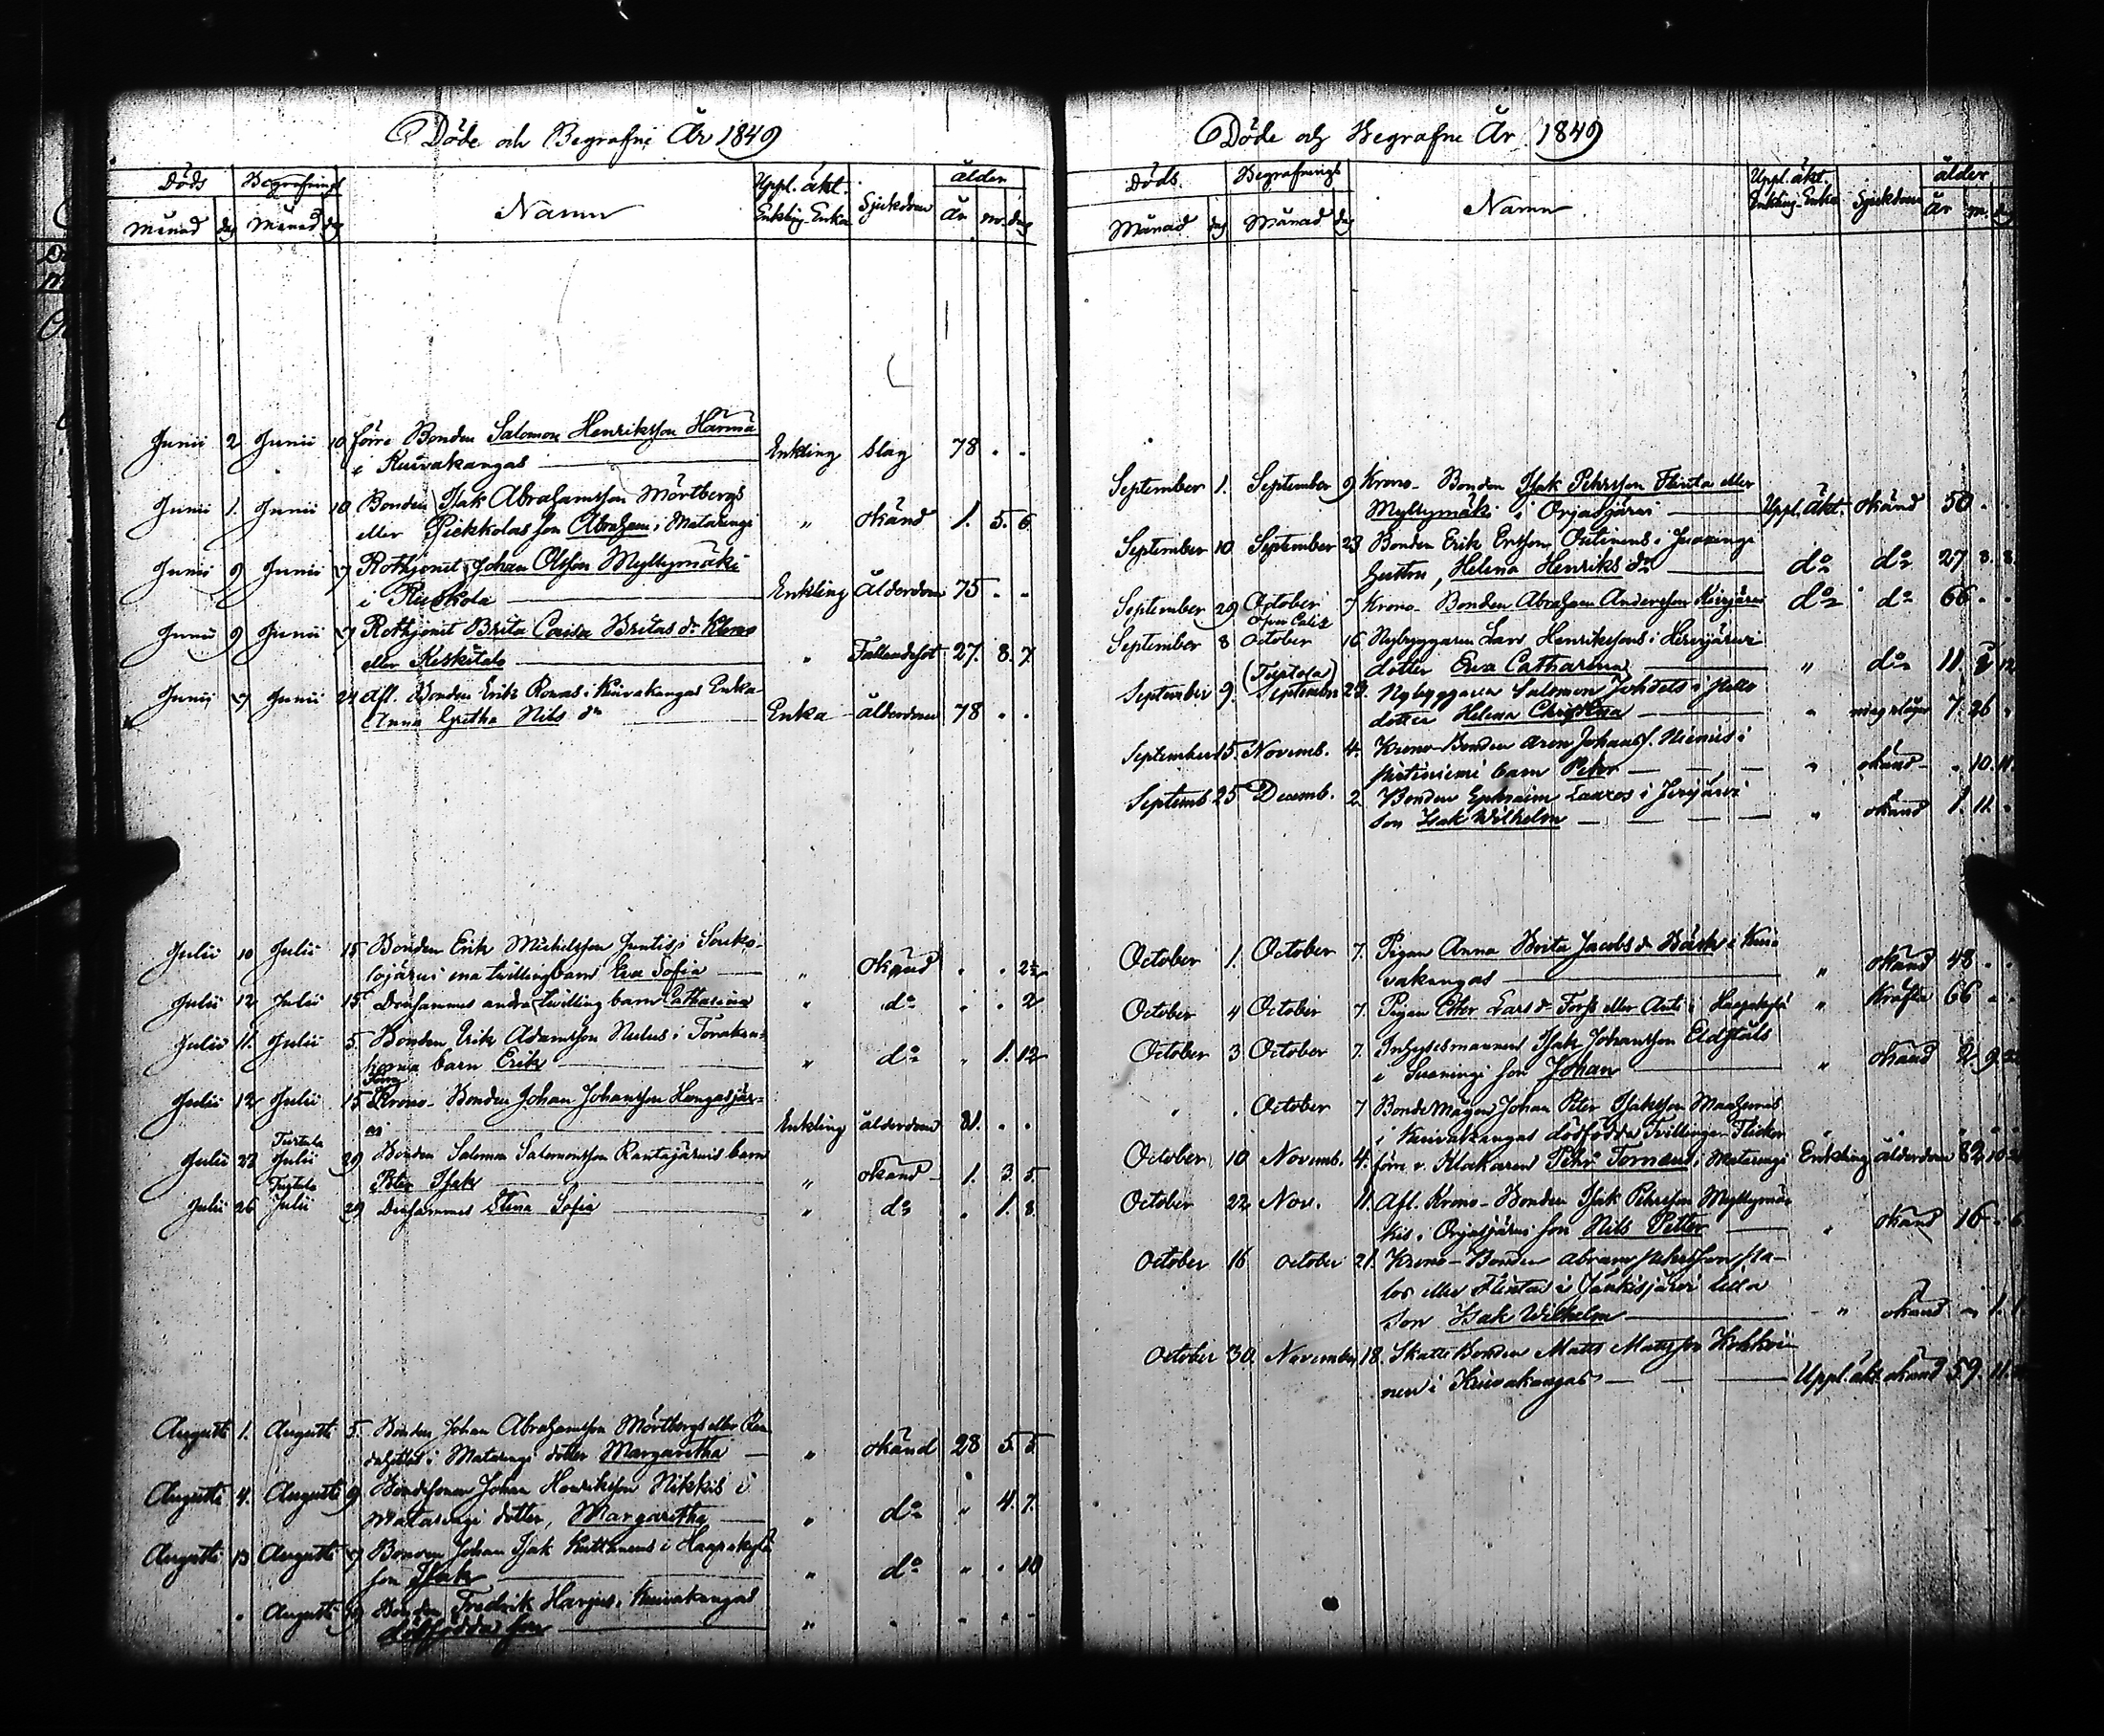 Döde och Begrafne År 1849
Döds Begrafnings Namn Uppl. äkt. Enkling Enka Sjukdom ålder
Månad dag Månad dag År m. dag
Junii 2 Junii 10 förre Bonden Salomon Henriksson Harma
i Kuivakangas Enkling Slag 78 . .
Junii 1. Junii 10 Bonden Isak Abrahamsson Mörtbergs
eller Pickkolas son Abraham i Matarengi " okänd 1. 5. 6
Junii 9 Junii 17 Rothjonet Johan Olsson Myllymäki
i Ruskola Enkling Ålderdom 75 . .
Junii 9 Junii 17 Rothjonet Brita Caisa Britas dr
eller Keskitalo " Fallandesot 27. 8. 7.
Junii 17 Junii 24 Afl. Bonden Eriks i Kuivakangas Enka
Anna Gretha Nils dr Enka ålderdom 78 . .
Julii 10 Julii 15 Bonden Erik Michelsson Juntis i Souko-
lojärvi ena tvillingbarn Eva Sofia " okänd . . 2½
Julii 12 Julii 15 Densammes andra tvilling barn Catharina " do . . 2
Julii 11. Julii 5. Bonden Erik Adamsson i
barn Erik " do . 1. 12
Julii 12 Julii 15 Förre Krono-Bonden Johan Johansson
Enkling ålderdom 81. . .
Turtola
Julii 22 Julii 29 Bonden Salomon Salomonsson Rantajärvis barn
Peter Isak " okänd 1. 3. 5.
Turtola
Julii 26 Julii 29 Densammes Stina Sofia " do . 1. 8.
Augusti 1. Augusti 5. Bonden Johan Abrahamsson Mörtbergs eller
i Matarengi dotter Margaretha " okänd 28 5. 5.
Augusti 4. Augusti 9 Bondesonen Johan Henriksson Nikkis i
Matarengi dotter, Margaretha " do " 4. 7.
Augusti 13 Augusti Bonden Johan Isak i Haapakylä
son Isak " do " . 10
. Augusti 19 Bonden Fredrik Harjus i Kuivakangas
dödfödda son " . . . .
Döde och Begrafne År 1849
Döds Begrafnings Namn Uppl. äkt. Enkling Enka Sjukdom ålder
Månad dag Månad dag År m. dag
September 1. September 9 Krono-Bonden Isak Pehrsson Flinta eller
Myllymäki i Orjasjärvi Uppl. äkt. okänd 50 . .
September 10 September 23 Bonden Erik Ersson i Juoxengi
hustru, Helena Henriks dr do do 27 8. 8.
September 29 October 7 Krono-Bonden Abraham Andersson do do 66 . .
September 8 October 16 Nybyggaren Lars Henrikssons i
dotter Eva Catharina " do 11. 12
(Turtola)
September 9. September 23. Nybyggaren Salomon i Pello
dotter Helena Christina " 7. 26 .
September 15. Novemb. 4. Krono-Bonden Aron Johanss. Niemis i
Pirtiniemi barn Pehr " okänd . 10. 11.
Septemb. 25 Decemb. 2 Bonden Ephraim Laaxos i Jerijärvi
son Isak Wilhelm " okänd 1. 11. .
October 1. October 7. Pigan Anna Brita Jacobs dr Bäck i Kui-
vakangas " okänd 48 . .
October 4 October 7. Pigan Ester Lars dr Forss eller Anti i Haapakylä " Kräfta 66 . .
October 3 October 7. Inhysesmannen Isak Johansson Eldståls
i Svansings son Johan " okänd 2. 9.
" . October 7 Bondemågen Johan Peter Isaksson
i Kuivakangas dödfödda Tvillingar Flickor "
October 10 Novemb. 4. förre v. Klockaren Pehr Fornæus i Matarengi Enkling ålderdom 82. 10.
October 22 Nov. 11. Afl. Krono-Bonden Isak Pehrsson Myllymä-
kis i Orjasjärvi son Nils Petter " okänd 16
October 16 October 21. Krono-Bonden Abram Pehrsson Pa-
los eller Flintas i Jänkisjärvi lilla
son Isak Wilhelm " okänd 1.
October 30. November 18. Skatte Bonden Matts Mattsson Kohkoi-
nen i Kuivakangas Uppl. äkt. okänd 59. 11.